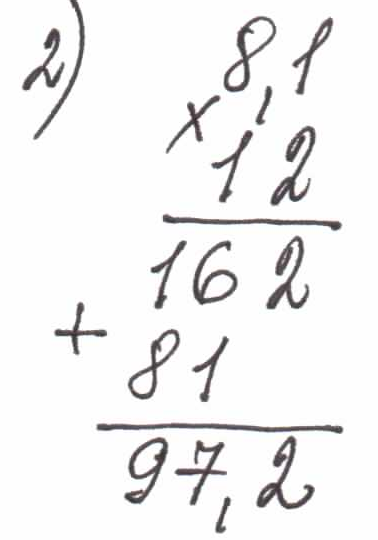 2) 8,1
× 12
162
+ 81
97,2